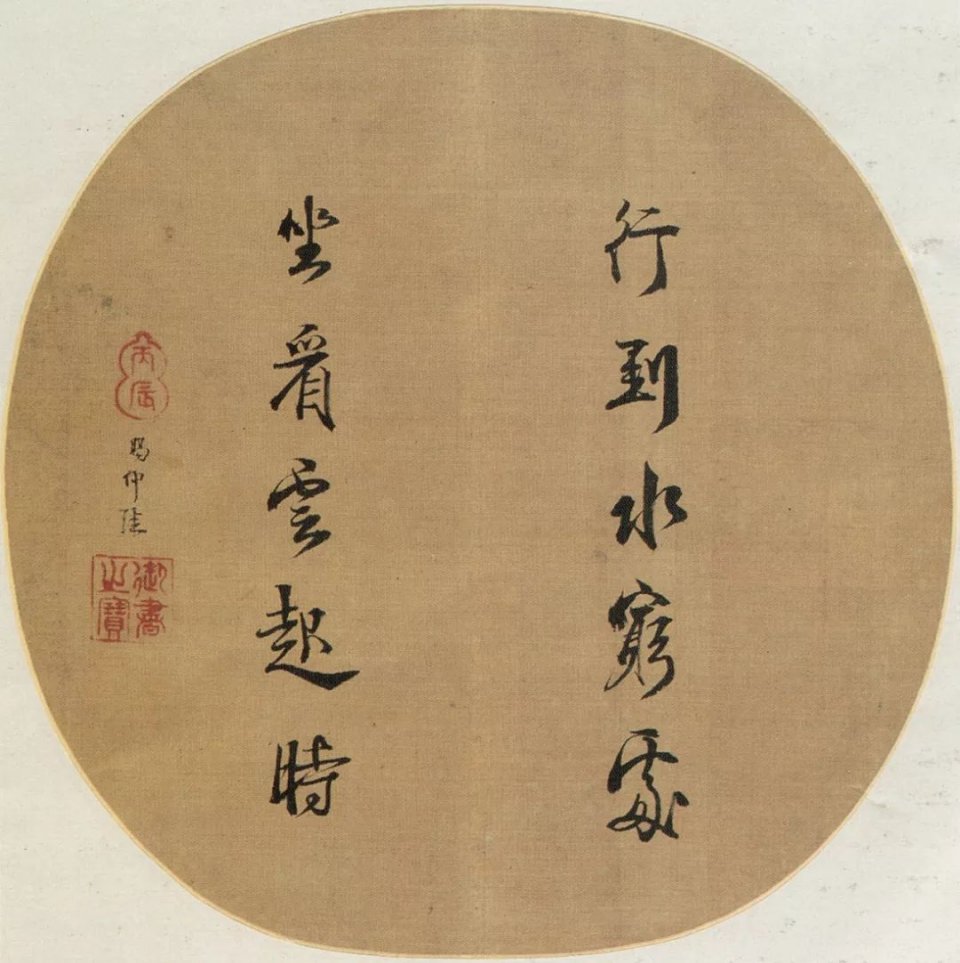 行到水窮處
坐看雲起時
丙辰
賜仲陛
御書之寶